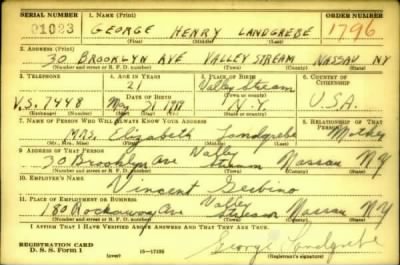 SERIAL NUMBER 1. NAME (Print) ORDER NUMBER
01023 GEORGE HENRY LANDGREBE 1796
(First) (Middle) (Last)
2. ADDRESS (Print)
30 BROOKLYN AVE VALLEY STREAM NASSAU NY
(Number and street or R. F. D. number) (Town) (County) (State)
3. TELEPHONE 4. AGE IN YEARS 5. PLACE OF BIRTH 6. COUNTRY OF CITIZENSHIP
21 Valley Stream
DATE OF BIRTH (Town or county)
V.S. 7448 May 21 1919 N.Y. U.S.A.
(Exchange) (Number) (Mo.) (Day) (Yr.) (State or country)
7. NAME OF PERSON WHO WILL ALWAYS KNOW YOUR ADDRESS 8. RELATIONSHIP OF THAT PERSON
MRS. Elizabeth Landgrebe Mother
(Mr., Mrs., Miss) (First) (Middle) (Last)
9. ADDRESS OF THAT PERSON
30 Brooklyn Ave Valley Stream Nassau N.Y
(Number and street or R. F. D. number) (Town) (County) (State)
10. EMPLOYER'S NAME
Vincent
11. PLACE OF EMPLOYMENT OR BUSINESS
180 Rockaway Ave Valley Stream Nassau N.Y
(Number and street or R. F. D. number) (Town) (County) (State)
I AFFIRM THAT I HAVE VERIFIED ABOVE ANSWERS AND THAT THEY ARE TRUE.
George Landgrebe
REGISTRATION CARD
D. S. S. Form 1 (over) (Registrant's signature)